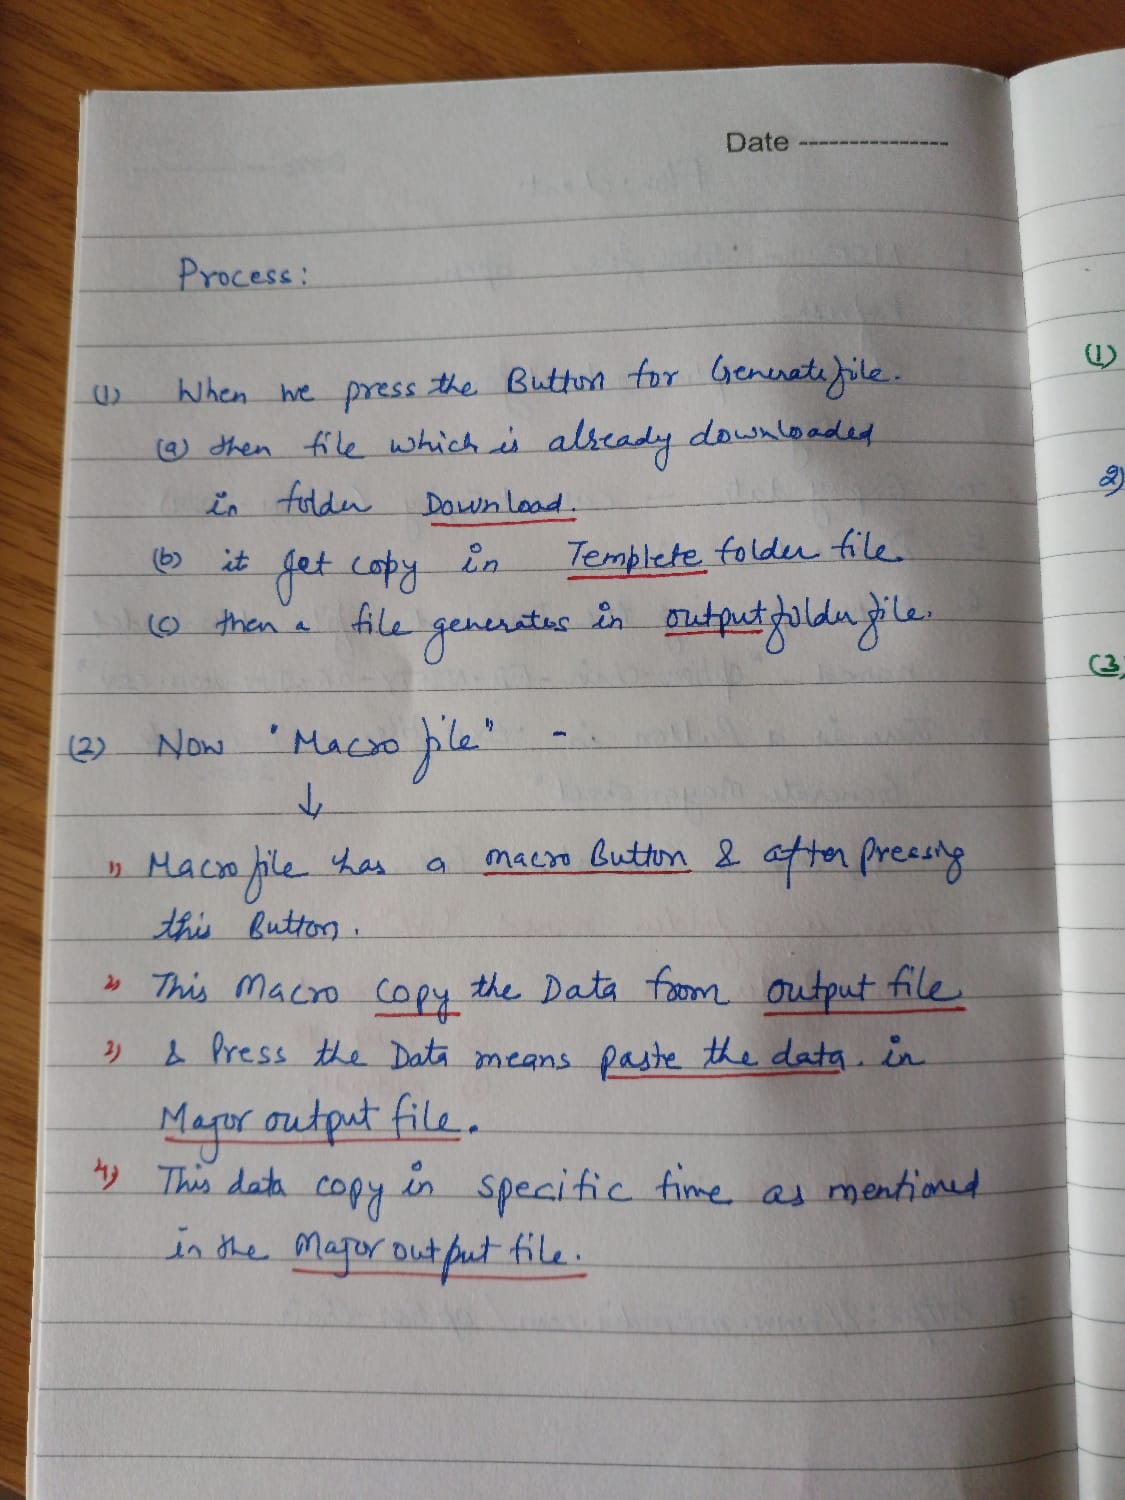 Date ---------------
Process:
(1) When we press the Button for Generate file.
(a) then file which is already downloaded
in folder Download.
(b) it get copy in Templete folder file.
(c) then a file generates in output folder file.
(2) Now "Macro file" -
↓
1) Macro file has a macro Button & after pressing
this Button.
2) This Macro copy the Data from output file
3) & Press the Data means paste the data. in
Major output file.
4) This data copy in specific time as mentioned
in the Major output file.
(1)
2)
(3)